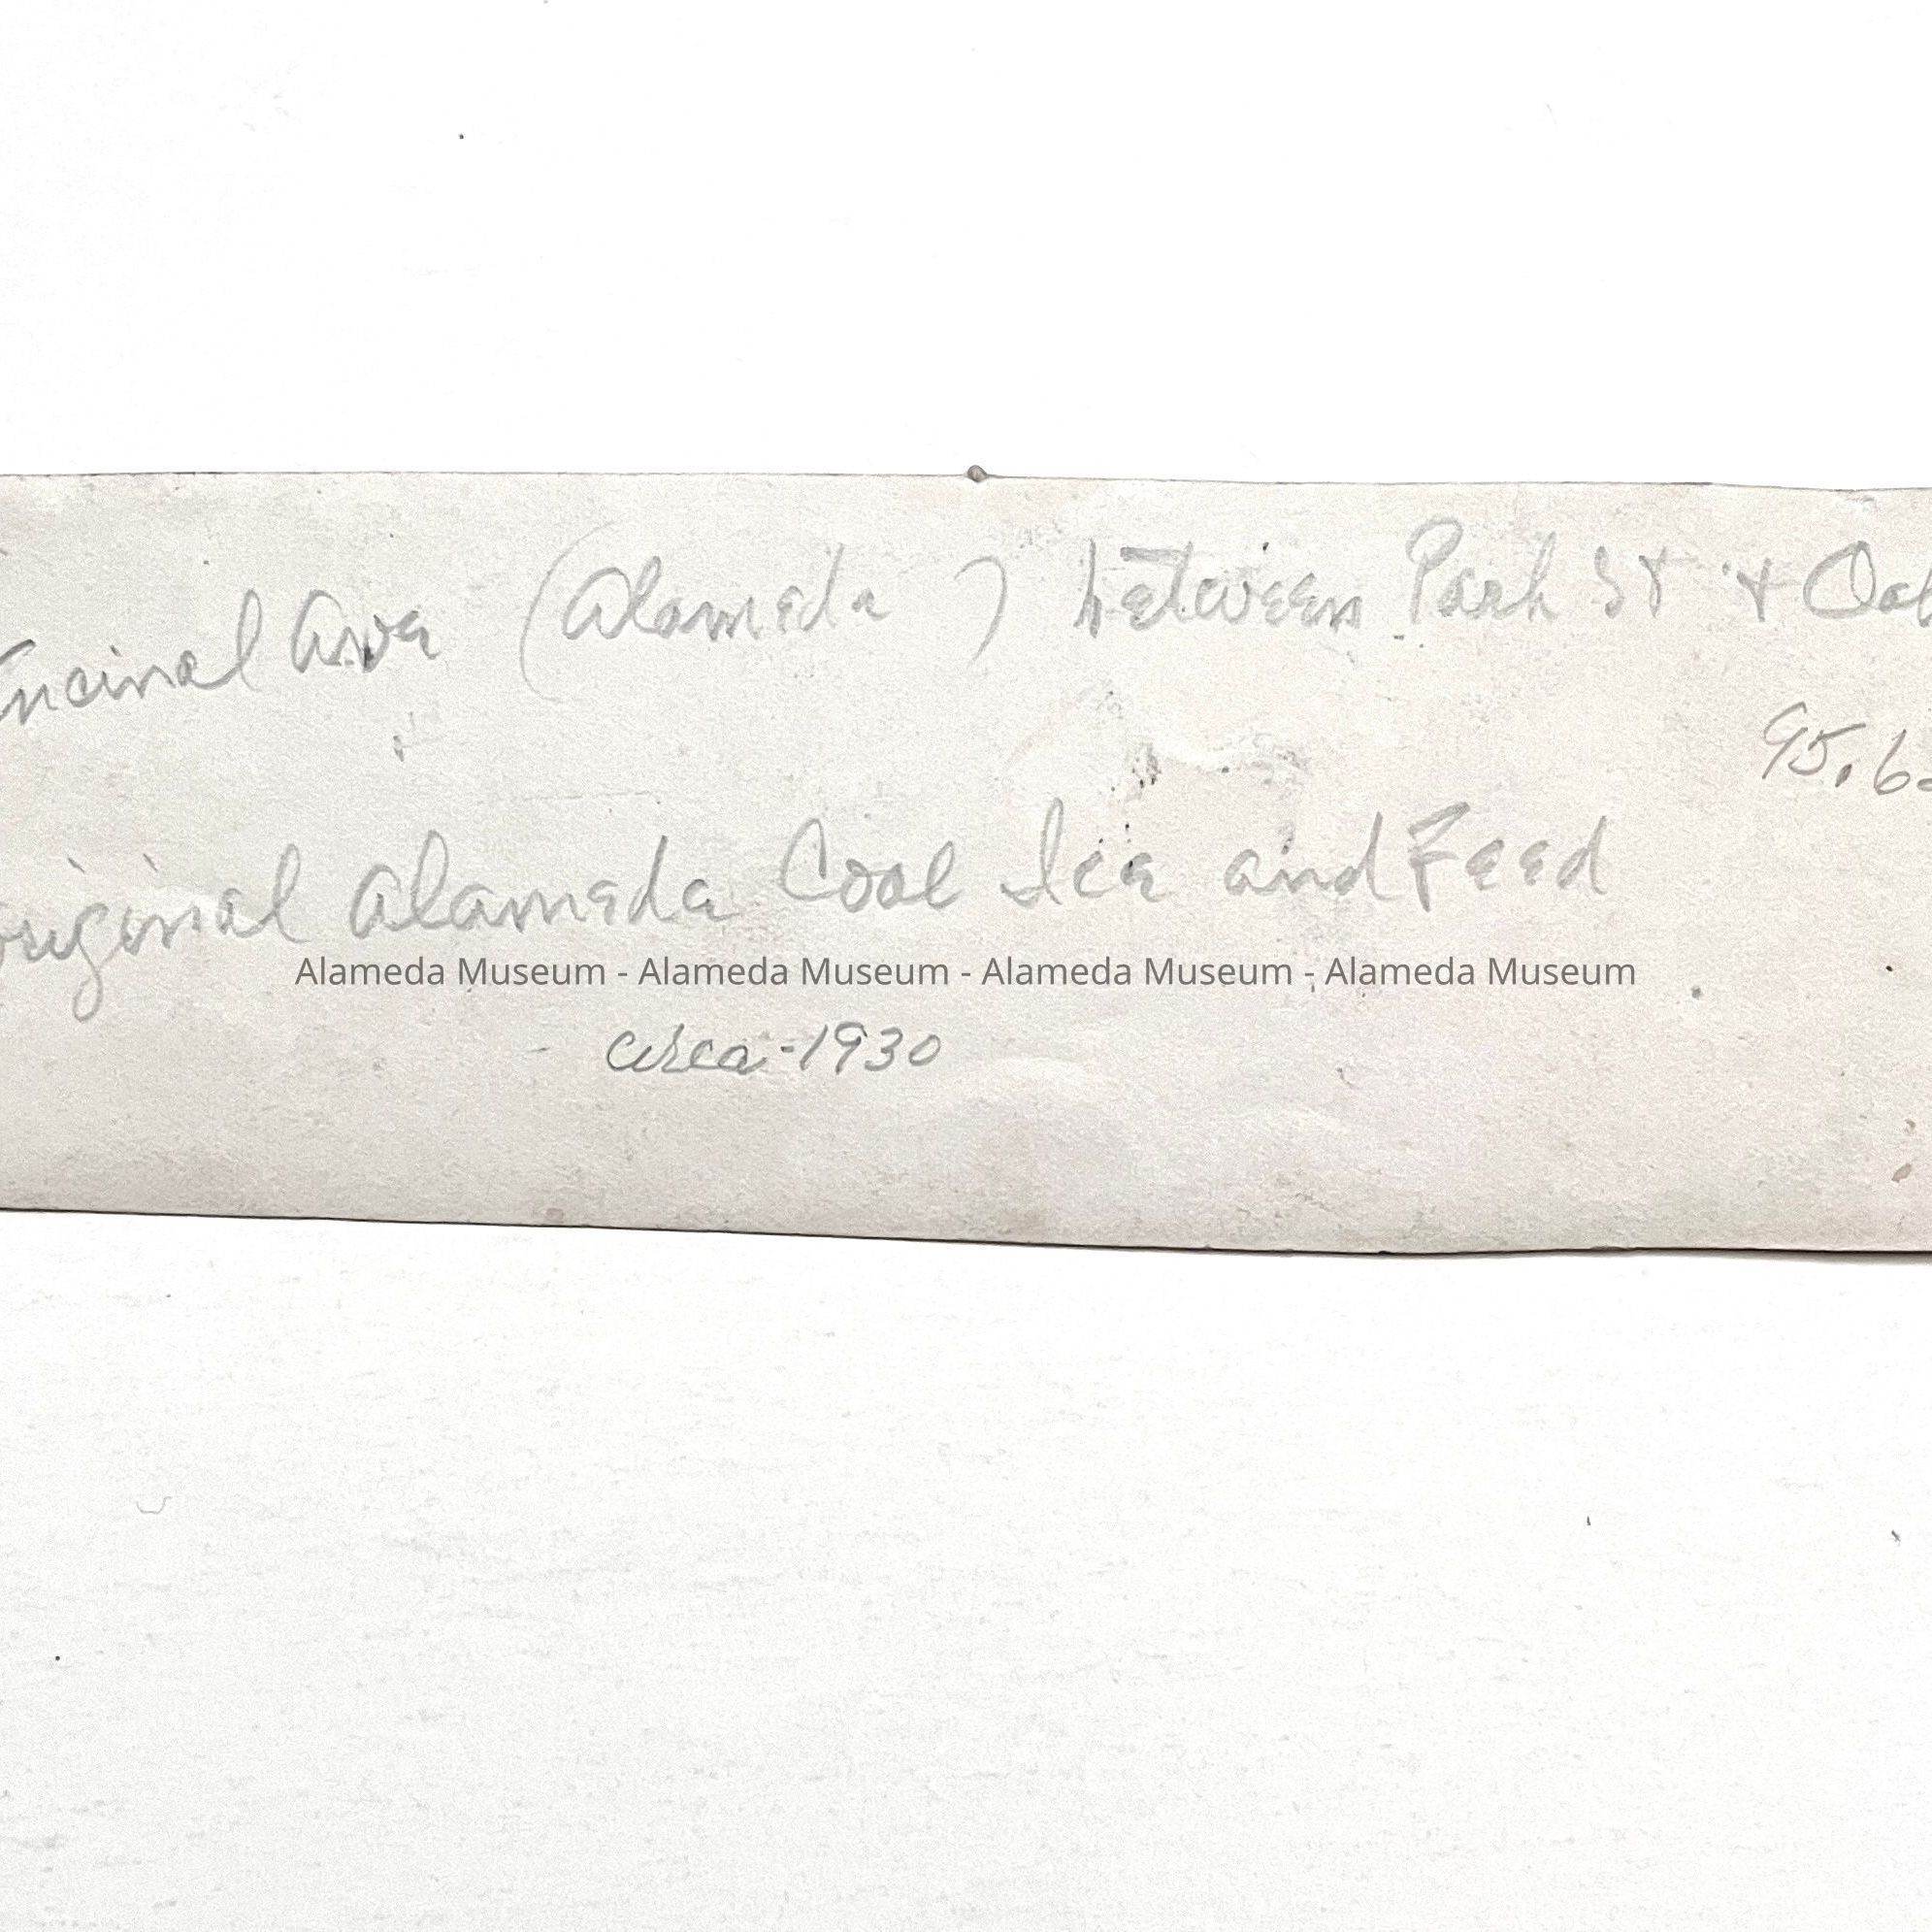 Encinal Ave (Alameda) between Park St + Oak
95.6
original Alameda Cool Ice and Feed
Alameda Museum - Alameda Museum - Alameda Museum - Alameda Museum
circa-1930